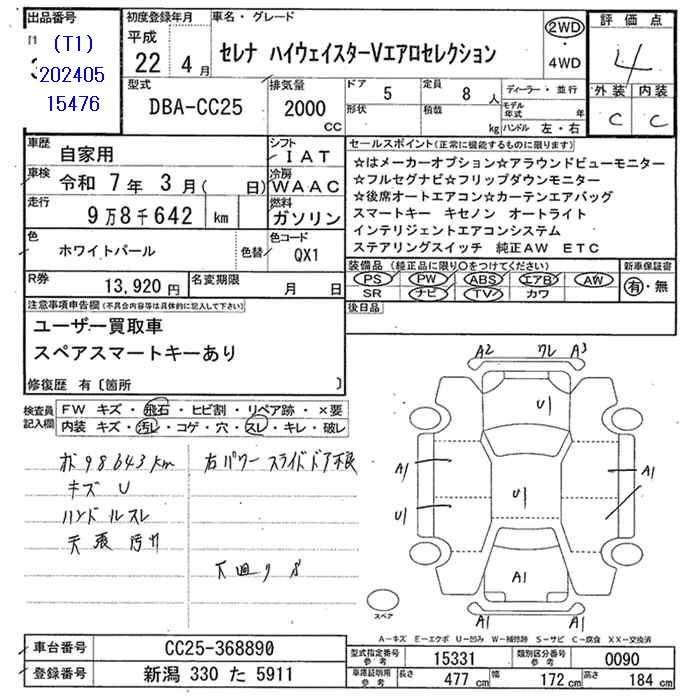 出品番号
(T1)
202405
15476
初度登録年月
平成
22 年 4 月
車名・グレード
セレナ ハイウェイスターVエアロセレクション
2WD
・
4WD
評価点
4
外装 内装
C C
型式
DBA-CC25
排気量
2000
CC
ドア
5
定員
8 人
形状
積載
kg
ディーラー・並行
モデル年式 年
ハンドル 左・右
車歴
自家用
シフト
IAT
車検
令和 7年 3月( 日)
冷房
WAAC
走行
9万8千642 km
燃料
ガソリン
色
ホワイトパール
色替
色コード
QX1
R券
13,920円
名変期限
月 日
セールスポイント(正常に機能するものに限ります)
☆はメーカーオプション☆アラウンドビューモニター
☆フルセグナビ☆フリップダウンモニター
☆後席オートエアコン☆カーテンエアバッグ
スマートキー キセノン オートライト
インテリジェントエアコンシステム
ステアリングスイッチ 純正AW ETC
装備品(純正品に限り○をつけてください)
PS PW ABS エアB AW
SR ナビ TV カワ
新車保証書
有・無
後日品
注意事項申告欄(不具合内容等は具体的に記入して下さい)
ユーザー買取車
スペアスマートキーあり
修復歴 有〔箇所 〕
検査員
記入欄
FW キズ・飛石・ヒビ割・リペア跡・×要
内装 キズ・汚レ・コゲ・穴・スレ・キレ・破レ
98643km
右パワースライドドア不良
キズ U
ハンドルスレ
天張汚れ
下廻り S
A2 ワレ A3
U1
A1 A1
U1 U1
A1
A1 A1
スペア
A-キズ E-エクボ U-凹み W-補修跡 S-サビ C-腐食 XX-交換済
車台番号
CC25-368890
登録番号
新潟 330 た 5911
型式指定番号
参考
15331
類別区分番号
参考
0090
車庫証明用
参考
長さ 477 cm 幅 172 cm 高さ 184 cm